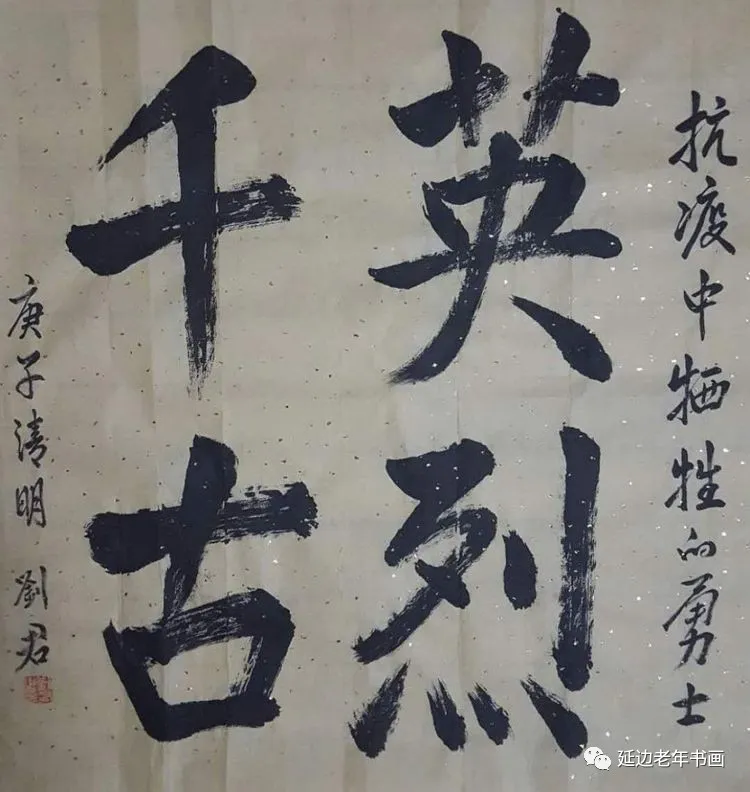 抗疫中牺牲的勇士
英烈
千古
庚子清明 劉君
延边老年书画